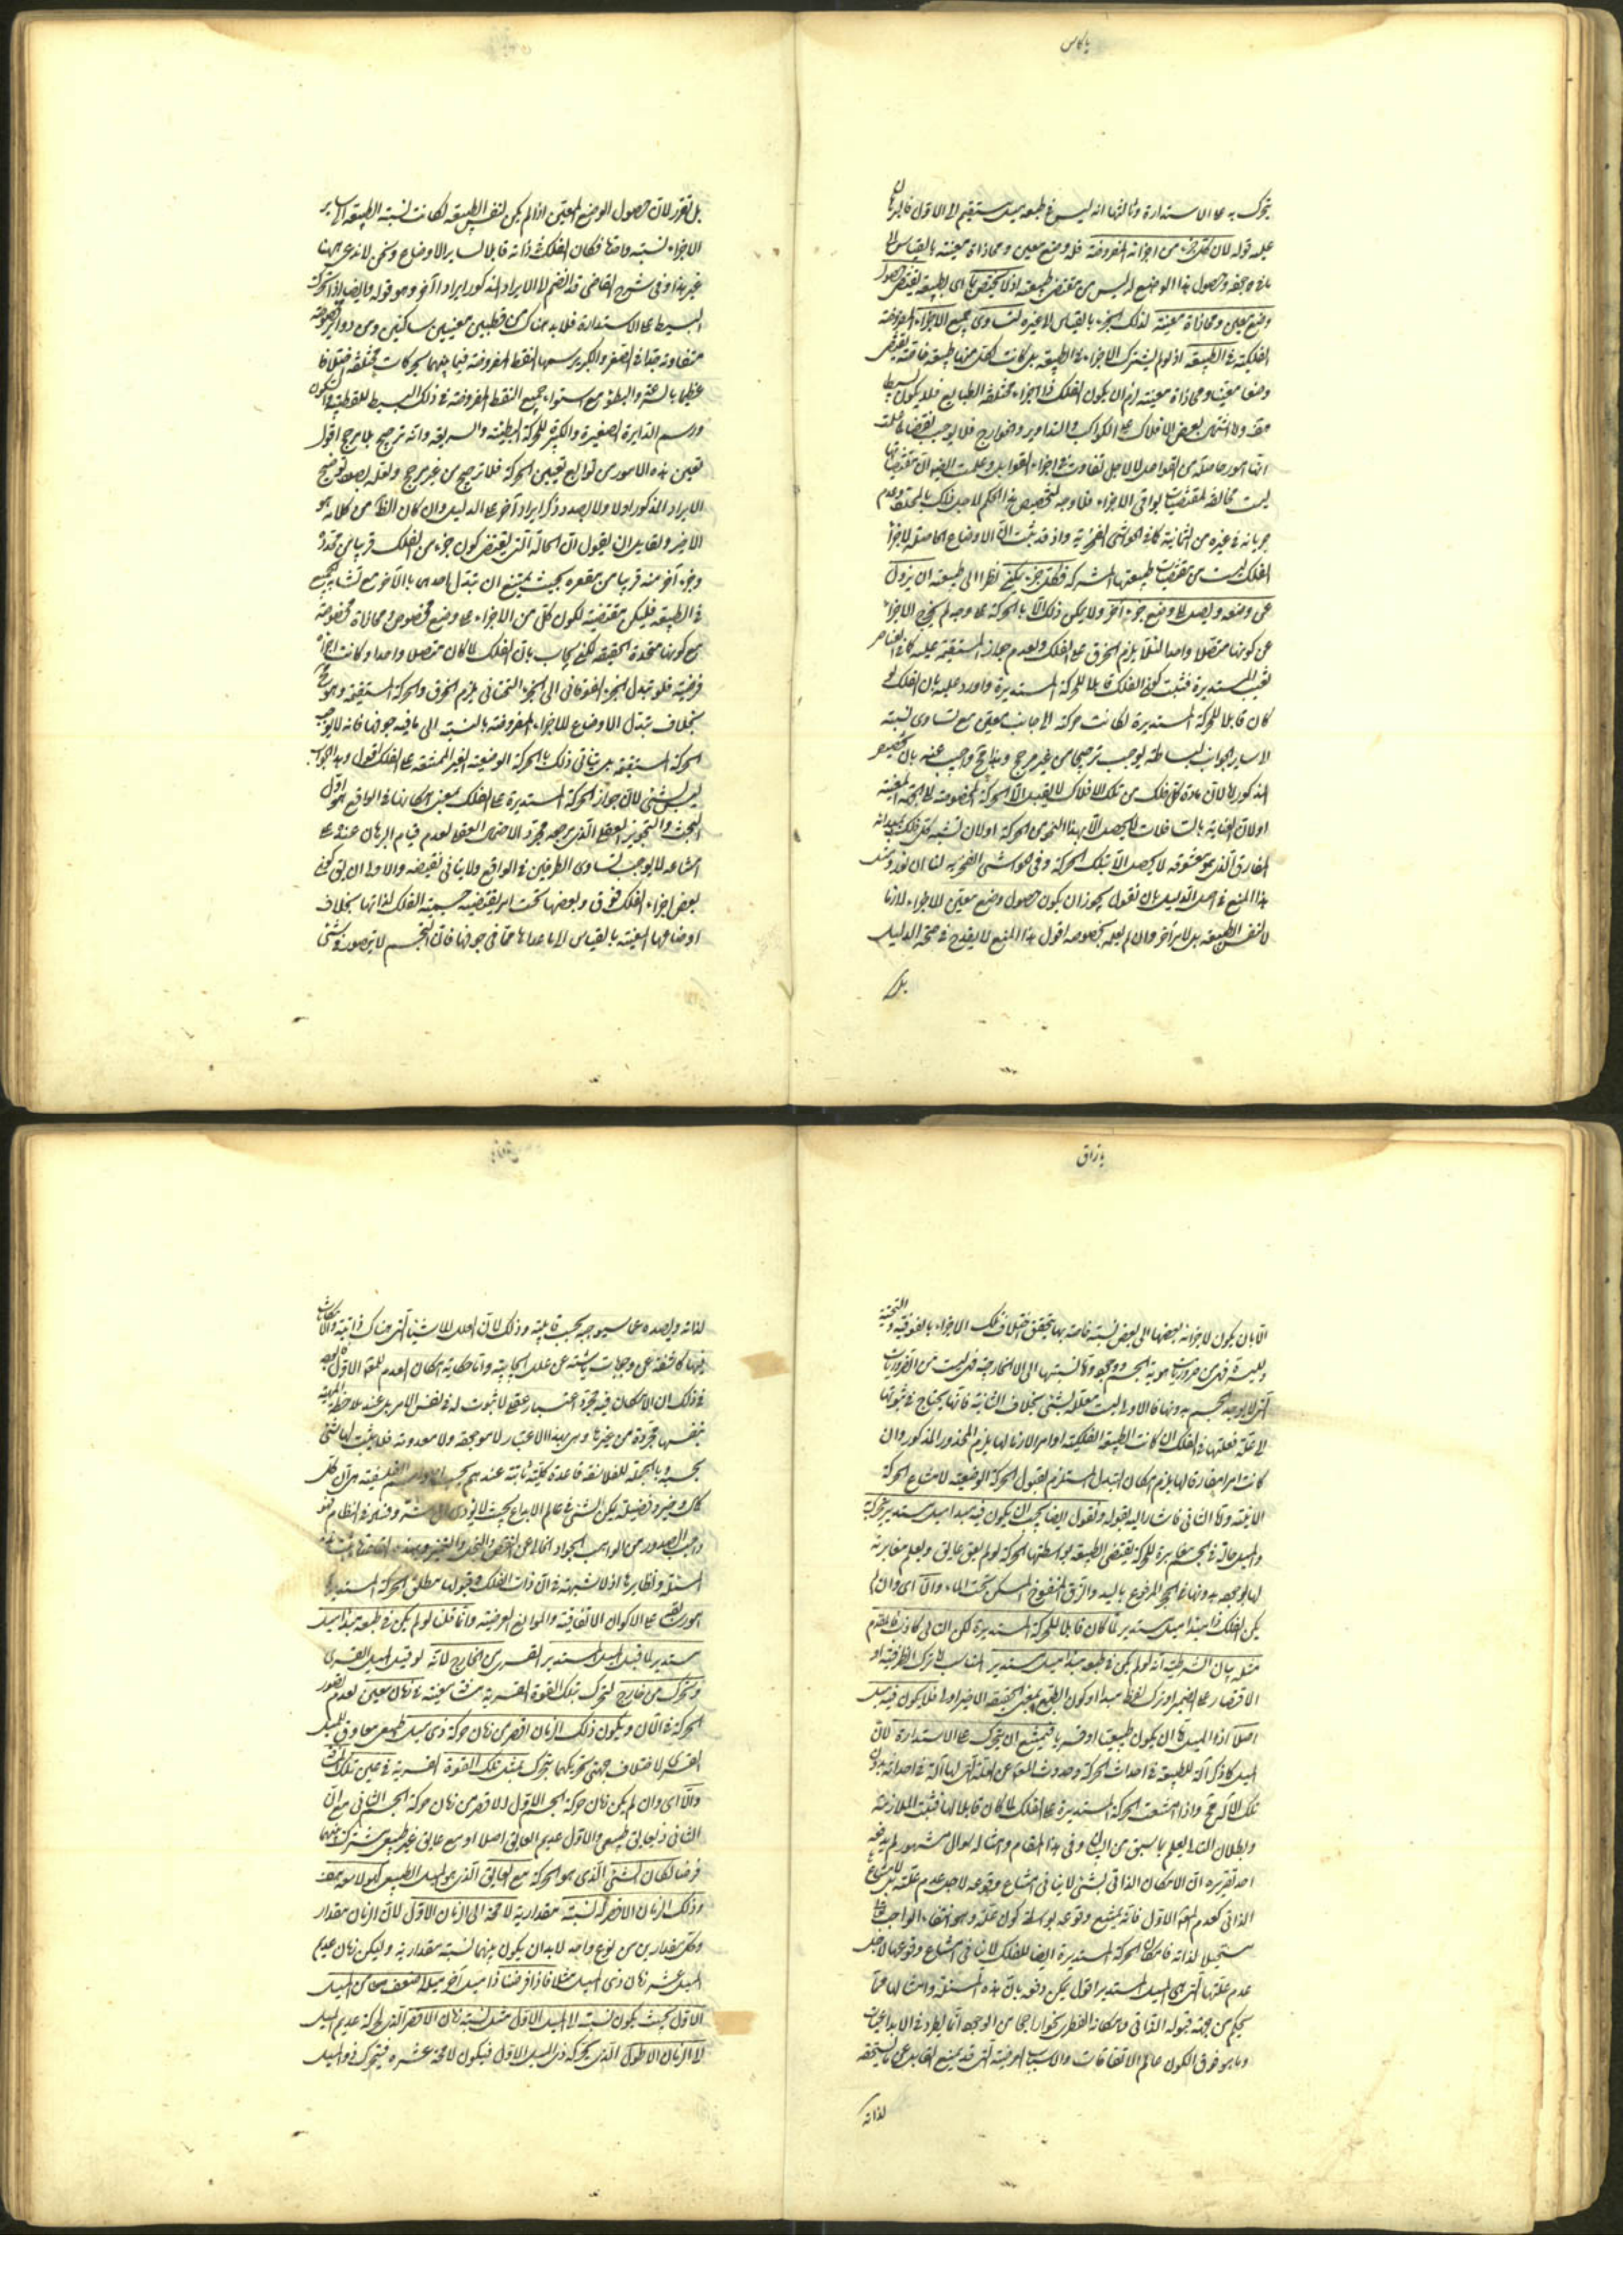 يا كاس
يتحرك به على الاستدارة وثالثها انه ليس في طبعه ميل مستقيم الى الاول فالبرهان
عليه قوله لان كل جزء من اجزائه المفروضة فله وضع معين ومحاذاة معينة بالقياس الى
ما في جوفه وحصول هذا الوضع له ليس من مقتضى طبيعته اذ لا يختص باى طبيعة يقتضى حصول
وضع معين ومحاذاة معينة لذلك الجزء بالقياس الى غيره لتساوى جميع الاجزاء المفروضة
الفلكية في الطبيعة اذ لو لم يشترك الاجزاء في الطبيعة بل كانت لكل منها طبيعة خاصة يقتضى
وضعا معينا ومحاذاة معينة لزم ان يكون الفلك ذا اجزاء مختلفة الطبايع فلا يكون بسيطا
هف ولا اشتمال بعض الافلاك على الكواكب والتداوير والخوارج فلا يوجب نقضا
انها امور حاصلة من القواعل لا لاجل تفاوت في اجزاء القوابل وعلمت ايضا ان مقتضياتها
ليست مخالفة لمقتضيات بواقى الاجزاء فلا وجه لتخصيص هذا الحكم لاجل ذلك بالمحدد وعدم
جريانه في غيره من الثمانية كما في الحواشى الفخرية واذ قد ثبت ان الاوضاع الحاصلة لاجزاء
الفلك ليست من مقتضيات طبيعتها المشتركة فكل جزء يمكن نظرا الى طبيعته ان يزول
عن وضعه ويصل الى وضع جزء آخر ولا يمكن ذلك الا بالحركة على وجه لم يخرج الاجزاء
عن كونها متصلا واحدا لئلا يلزم الخرق على الفلك ولعدم جواز المستقيمة عليه كما في العناصر
فتعين المستديرة فثبت كون الفلك قابلا للحركة المستديرة واورد عليه بان الفلك لو
كان قابلا للحركة المستديرة لكانت حركته الى جانب معين مع تساوى نسبته
الى ساير الجوانب لبساطته يوجب ترجيحا من غير مرجح وانه مح واجيب عنه بان التخصيص
المذكور اما لان مادة كل فلك من تلك الافلاك لا يقبل الا الحركة المخصوصة الى الجهة المعينة
او لان العناية بالسافلات لا يحصل الا بهذا النحو من الحركة او لان تشبه كل فلك بمبدئه
المفارق الذى هو معشوقه لا يحصل الا بتلك الحركة وفى الحواشى الفخرية لنا ان نورد
هذا المنع في اصل الدليل بان نقول يجوز ان يكون حصول وضع معين للاجزاء لازما
لا لنفس الطبيعة بل لامر آخر وان لم يعلم بخصوصه اقول هذا المنع لا يقدح في صحة الدليل
بل
بل تقرر لان حصول الوضع المعين اذا لم يكن لنفس الطبيعة لكانت نسبة الطبيعة الى ساير
الاجزاء نسبة واحدة فكان الفلك في ذاته قابلا لساير الاوضاع ونحن لا ندعى ههنا
غير هذا وفى شرح القاضى قد انضم الى الايراد المذكور ايراد آخر وهو قوله وايضا اذا تحرك
البسيط على الاستدارة فلا بد هناك من قطبين معينين ساكنين ومن دواير مخصوصة
متفاوتة جدا في الصغر والكبر يرسمها النقط المفروضة فيما بينهما بحركات مختلفة اختلافا
عظيما بالسرعة والبطؤ مع استواء جميع النقط المفروضة في ذلك البسيط للقطبية والسكون
ورسم الدايرة الصغيرة والكبيرة للحركة البطيئة والسريعة وانه ترجيح بلا مرجح اقول
تعيين هذه الامور من توابع تعيين الحركة فلا ترجيح من غير مرجح ولعله بصدد توضيح
الايراد المذكور اولا ولا بصدد ذكر ايراد آخر على الدليل وان كان الظاهر من كلامه هو
الاخير ولقايل ان يقول ان الحالة التى يقتضى كون جزء من الفلك قريبا من محدبه
وجزء آخر منه قريبا من مقعره بحيث يمتنع ان تبدل احدهما بالآخر مع تشابه الجميع
في الطبيعة فليكن مقتضية لكون كل من الاجزاء على وضع مخصوص ومحاذاة مخصوصة
مع كونها متحدة الحقيقة لكن يجاب بان الفلك لما كان متصلا واحدا وكانت اجزاؤه
فرضية فلو تبدل الجزء الفوقانى الى الجزء التحتانى يلزم الخرق والحركة المستقيمة وهو مح
بخلاف تبدل الاوضاع للاجزاء المفروضة بالنسبة الى ما فيه جوفها فانه لا يوجب
الحركة المستقيمة بل يتاتى ذلك بالحركة الوضعية الغير الممتنعة على الفلك اقول وهذا الجواب
ليس بشئ لان جواز الحركة المستديرة على الفلك بمعنى امكانها في الواقع هو اول
البحث والتجويز العقلى الذى مرجعه مجرد الاحتمال العقلى لعدم قيام البرهان عنده على
امتناعه لا يوجب تساوى الطرفين في الواقع ولا ينافى نقيضه والاولى ان يق كون
بعض اجزاء الفلك فوق وبعضها تحت امر يقتضيه جسمية الفلك لذاتها بخلاف
اوضاعها المعينة بالقياس الى ما عداها مما في جوفها فان الجسم لا يتصور وشئ
يا رزاق
الا بان يكون لاجزائه بعضها الى بعض نسبة خاصة بها يتحقق اختلاف تلك الاجزاء بالفوقية والتحتية
وبالجملة فهى من ضروريات هوية الجسم ووجوده واما نسبتها الى الامر الخارجة فليست من الضروريات
التى لا يوجد الجسم بدونها فالاولى ليست معللة بشئ بخلاف الثانية فانها يحتاج في ثبوتها
الى علة فعلتها في الفلك ان كانت الطبيعة الفلكية او امر الازما لها يلزم المحذور المذكور وان
كانت امرا مفارقا لها يلزم امكان التبدل المستلزم لقبول الحركة الوضعية لامتناع الحركة
الاينية واما الثانى فاشار اليه بقوله ونقول ايضا يجب ان يكون فيه مبدأ ميل مستدير يتحرك به
والميل حالة في الجسم مغايرة للحركة يقتضى الطبيعة بواسطتها الحركة لو لم يعق عايق ويعلم مغايرته
لها لوجوده بدونها في الحجر المرفوع باليد والزق المنفوخ المسكن تحت الماء والا اى وان لم
يكن الفلك ذا مبدأ ميل مستدير لما كان قابلا للحركة المستديرة لكن التالى كاذب فالمقدم
مثله بيان الشرطية انه لو لم يكن في طبعه مبدأ ميل مستدير المناسب له ترك الظرفية او
الاقتصار على الضمير او ترك لفظ مبدأ او كون الطبع بمعنى الحقيقة الاخير اولى فلا يكون فيه ميل
اصلا اذ الميل اما ان يكون طبيعيا او قسريا فيمتنع ان يتحرك على الاستدارة لان
الميل كما ذكر آلة للطبيعة في احداث الحركة وحدوث المعلول عن العلة التى لها آلة في احداثه بدون
تلك الآلة مح واذا امتنعت الحركة المستديرة على الفلك لما كان قابلا لها فثبت الملازمة
وبطلان التالى يعلم بما سبق من البيان وفى هذا المقام وامثاله سؤال مشهور لم يدفعه
احد تقريره ان الامكان الذاتى لشئ لا ينافى امتناع وقوعه لاجل عدم علته بل الامتناع
الذاتى كعدم المعلول الاول فانه يمتنع وقوعه بواسطة كون علته وهو انتفاء الواجب تعالى
مستحيلا لذاته فامكان الحركة المستديرة ايضا للفلك لا ينافى امتناع وقوعها لاجل
عدم علتها التى هى الميل المستدير اقول يمكن دفعه بان هذه المسئلة وامثالها مما
يحكم من جهة قبوله الذاتى وامكانه الفطرى نحوا ما من الوجود انما يطرد في الابداعيات
وما هو فوق الكون عالم الاتفاقات والاسباب العرضية التى قد يمنع القابل عما يستحقه
لذاته
لذاته ويصده عما سيوجبه بحسب قابليته وذلك لان العلل للاشياء التى هناك ذاتية والامكانات
فيها كاشفة عن وجهات ناشئة عن علل ايجابية واما حكاية امكان العدم للمعلول الاول فالوجه
في ذلك ان الامكان فيه مجرد اعتبار عقلى لا ثبوت له في نفس الامر بل عند ملاحظة الماهية
بنفسها مجردة من غيرها وهى بهذا الاعتبار لا موجودة ولا معدومة فلا يثبت لها شئ
بحسبه وبالجملة للفلاسفة قاعدة كلية ثابتة عندهم بحسب اصولهم الفلسفية هى ان كل
كمال وخير وفضيلة يمكن لشئ في عالم الابداع بحيث لا يؤدى الى شر وفساد في النظام فهو
واجب الصدور من الواهب الجواد الخالى عن النقص والبخل والتغير
المسئلة ونظايرها اذ لا شبهة في ان ذات الفلك وقبولها مطلق الحركة المستديرة
امور يتقدم على الاكوان الاتفاقية والموانع العرضية وانما قلنا لو لم يكن في طبعه مبدأ ميل
مستدير لما قبل الميل المستدير القسرى من الخارج لانه لو قبل الميل القسرى
وتحرك من خارج لتحرك بتلك القوة القسرية مسافة معينة في زمان معين لعدم تصور
الحركة في الآن ويكون ذلك الزمان اقصر من زمان حركة ذى ميل طبيعى معاوق للميل
القسرى لاختلاف جهتى تحريكهما يتحرك بمثل تلك القوة القسرية في عين تلك المسافة
والا اى وان لم يكن زمان حركة الجسم الاول الاقصر من زمان حركة الجسم الثانى مع ان
الثانى ذو عايق طبيعى والاول عديم العايق اصلا او مع عايق غير طبيعى مشترك بينهما
فرضا لكان الشئ الذى هو الحركة مع العايق الذى هو الميل الطبيعى كهو لا معه هف
وذلك الزمان الاقصر له نسبة مقدارية لا محة الى الزمان الاول لان الزمان مقدار
وكل مقدارين من نوع واحد لا بد ان يكون بينهما نسبة مقدارية وليكن زمان عديم
الميل عشر زمان ذى الميل مثلا فاذا فرضنا ذا ميل آخر ميله اضعف من الميل
الاول بحيث يكون نسبته الى الميل الاول مثل نسبة زمان الاقصر الذى لحركة عديم الميل
الى الزمان الاطول الذى لحركة ذى الميل الاول فيكون لا محة عشره فيتحرك ذو الميل